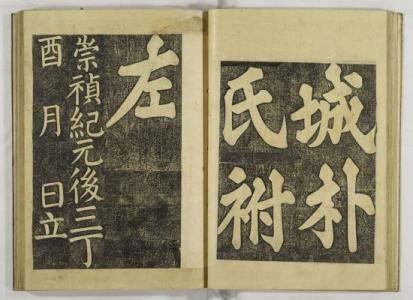 城朴
氏祔
左
崇禎紀元後三丁
酉 月 日立